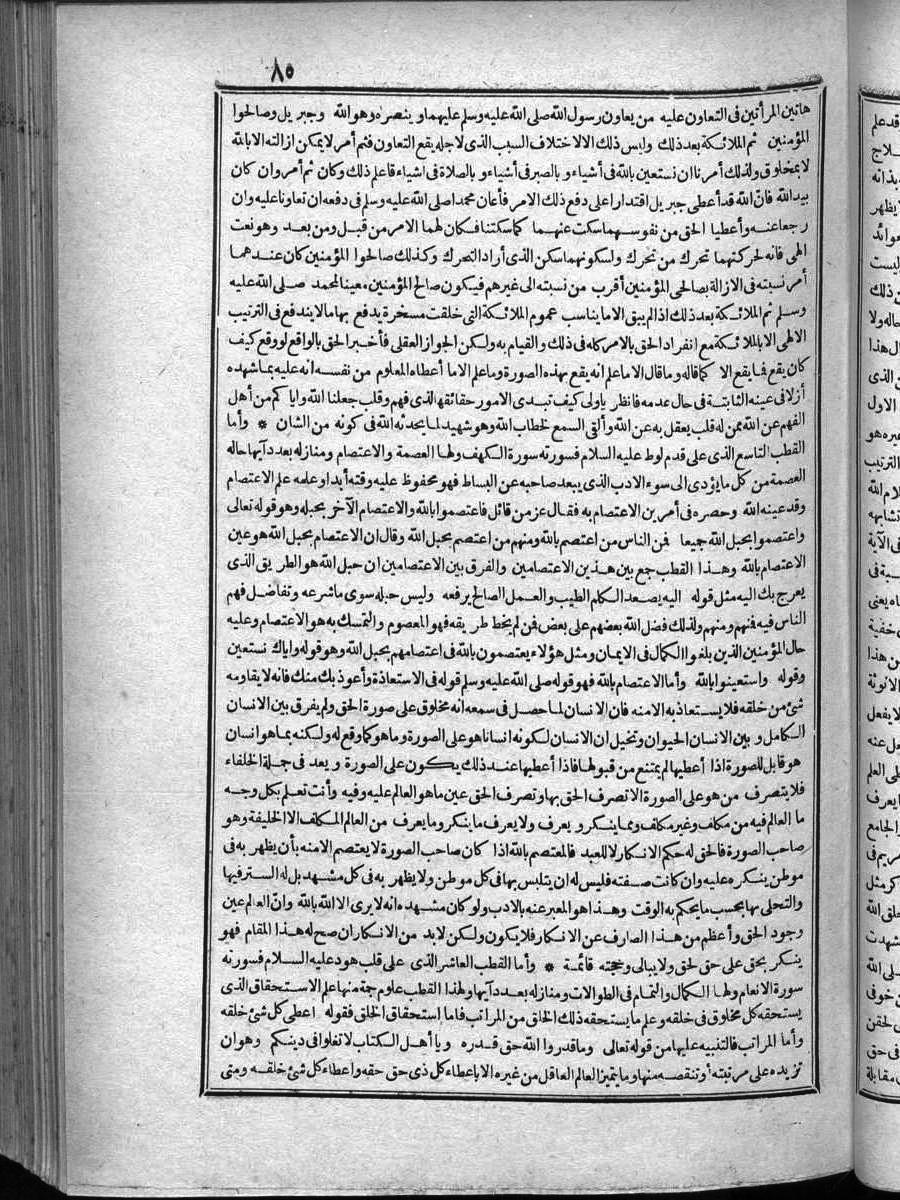 ٨٥
هاتين المرأتين فى التعاون عليه من يعاون رسول الله صلى الله عليه وسلم عليهما وينصره وهو الله وجبريل وصالحوا
المؤمنين ثم الملائكة بعد ذلك وليس ذلك الا لاختلاف السبب الذى لاجله يقع التعاون فثم أمر لا يمكن ازالته الا بالله
لا بمخلوق ولذلك أمرنا ان نستعين بالله فى أشياء وبالصبر فى أشياء وبالصلاة فى أشياء فاعلم ذلك وكان ثم أمر وان كان
بيد الله فان الله قد أعطى جبريل اقتدارا على دفع ذلك الامر فأعان محمدا صلى الله عليه وسلم فى دفعه ان تعاونا عليه وان
رجعا عنه وأعطيا الحق من نفوسهما سكت عنهما كما سكتنا فكان لهما الامر من قبل ومن بعد وهو نعت
الهى فانه لحركتهما تحرك من تحرك ولسكونهما سكن الذى أراد التحرك وكذلك صالحوا المؤمنين كان عندهما
أمر نسبته فى الازالة بصالحى المؤمنين أقرب من نسبته الى غيرهم فيكون صالح المؤمنين معينا لمحمد صلى الله عليه
وسلم ثم الملائكة بعد ذلك اذا لم يبق الا ما يناسب عموم الملائكة التى خلقت مسخرة يدفع بها ما لا يندفع فى الترتيب
الالهى الا بالملائكة مع انفراد الحق بالامر كله فى ذلك والقيام به ولكن الجواز العقلى فأخبر الحق بالواقع لو وقع كيف
كان يقع فما يقع الا كما قاله وما قال الا ما علم انه يقع بهذه الصورة وما علم الا ما أعطاه المعلوم من نفسه انه عليه بما شهده
أزلا فى عينه الثابتة فى حال عدمه فانظر ياولى كيف تبدى الامور حقائقها لذى فهم وقلب جعلنا الله واياكم من أهل
الفهم عن الله ممن له قلب يعقل به عن الله وألقى السمع لخطاب الله وهو شهيد لما يحدثه الله فى كونه من الشان * وأما
القطب التاسع الذى على قدم لوط عليه السلام فسورته سورة الكهف ولها العصمة والاعتصام ومنازله بعدد آيها حاله
العصمة من كل ما يؤدى الى سوء الادب الذى يبعد صاحبه عن البساط فهو محفوظ عليه وقته أبدا وعلمه علم الاعتصام
وقد عينه الله وحصره فى أمرين الاعتصام به فقال عز من قائل فاعتصموا بالله والاعتصام الآخر بحبله وهو قوله تعالى
واعتصموا بحبل الله جميعا فمن الناس من اعتصم بالله ومنهم من اعتصم بحبل الله وقال ان الاعتصام بحبل الله هو عين
الاعتصام بالله وهذا القطب جمع بين هذين الاعتصامين والفرق بين الاعتصامين ان حبل الله هو الطريق الذى
يعرج بك اليه مثل قوله اليه يصعد الكلم الطيب والعمل الصالح يرفعه وليس حبله سوى ما شرعه وتفاضل فهم
الناس فيه فمنهم ومنهم ولذلك فضل الله بعضهم على بعض فمن لم يخط طريقه فهو المعصوم والتمسك به هو الاعتصام وعليه
حال المؤمنين الذين بلغوا الكمال فى الايمان ومثل هؤلاء يعتصمون بالله فى اعتصامهم بحبل الله وهو قوله واياك نستعين
وقوله واستعينوا بالله وأما الاعتصام بالله فهو قوله صلى الله عليه وسلم قوله فى الاستعاذة وأعوذ بك منك فانه لا يقاومه
شئ من خلقه فلا يستعاذ به الا منه فان الانسان لما حصل فى سمعه انه مخلوق على صورة الحق ولم يفرق بين الانسان
الكامل وبين الانسان الحيوان وتخيل ان الانسان لكونه انسانا هو على الصورة وما هو كما وقع له ولكنه بما هو انسان
هو قابل للصورة اذا أعطيها لم يمتنع من قبولها فاذا أعطيها عند ذلك يكون على الصورة ويعد فى جملة الخلفاء
فلا يتصرف من هو على الصورة الا تصرف الحق بها وتصرف الحق عين ما هو العالم عليه وفيه وأنت تعلم بكل وجه
ما العالم فيه من مكلف وغير مكلف ومما ينكر ويعرف ولا يعرف ما ينكر وما يعرف من العالم المكلف الا الخليفة وهو
صاحب الصورة فالحق له حكم الانكار لا للعبد فالمعتصم بالله اذا كان صاحب الصورة لا يعتصم الا منه بأن يظهر به فى
موطن ينكره عليه وان كانت صفته فليس له ان يتلبس بها فى كل موطن ولا يظهر به فى كل مشهد بل له الستر فيها
والتحلى بها بحسب ما يحكم به الوقت وهذا هو المعبر عنه بالادب ولو كان مشهده انه لا يرى الا الله بالله وان العالم عين
وجود الحق وأعظم من هذا الصارف عن الانكار فلا يكون ولكن لا بد من الانكار ان صح له هذا المقام فهو
ينكر بحق على حق لحق ولا يبالى وحجته قائمة * وأما القطب العاشر الذى على قلب هود عليه السلام فسورته
سورة الانعام ولها الكمال والتمام فى الطوالات ومنازله بعدد آيها ولهذا القطب علوم جمة منها علم الاستحقاق الذى
يستحقه كل مخلوق فى خلقه وعلم ما يستحقه ذلك الخلق من المراتب فاما استحقاق الخلق فقوله اعطى كل شئ خلقه
وأما المراتب فالتنبيه عليها من قوله تعالى وما قدروا الله حق قدره ويا أهل الكتاب لا تغلوا فى دينكم وهو ان
تزيده على مرتبته أو تنقصه منها وما يتميز العالم العاقل من غيره الا باعطاء كل ذى حق حقه واعطاء كل شئ خلقه ومتى